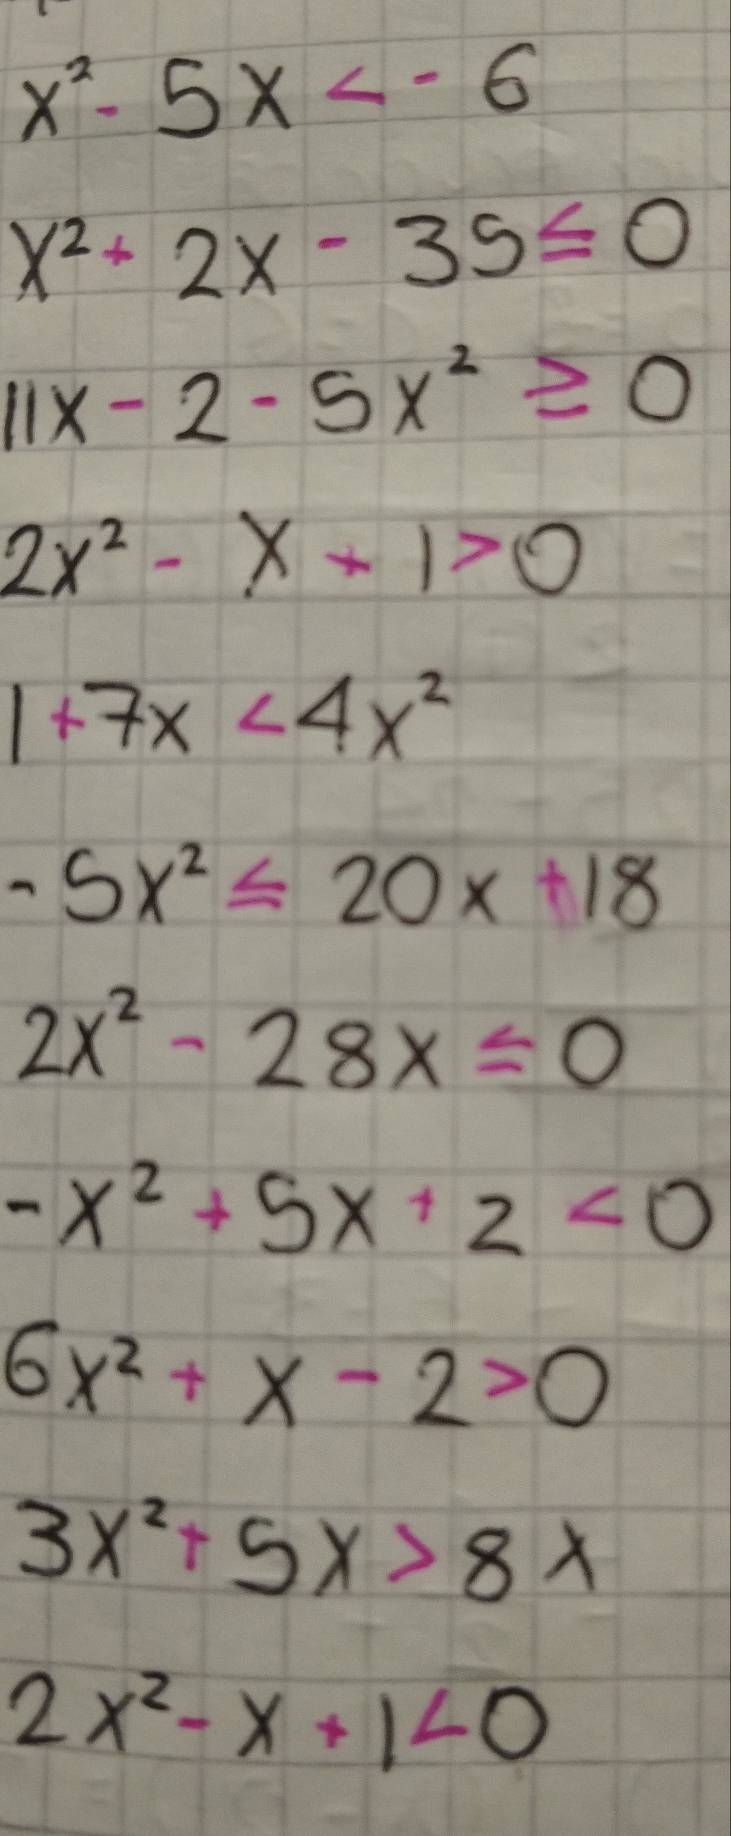 x² - 5x < - 6
x² + 2x - 35 ≤ 0
11x - 2 - 5x² ≥ 0
2x² - x + 1 > 0
1 + 7x < 4x²
- 5x² ≤ 20x + 18
2x² - 28x ≤ 0
- x² + 5x + 2 < 0
6x² + x - 2 > 0
3x² + 5x > 8x
2x² - x + 1 < 0